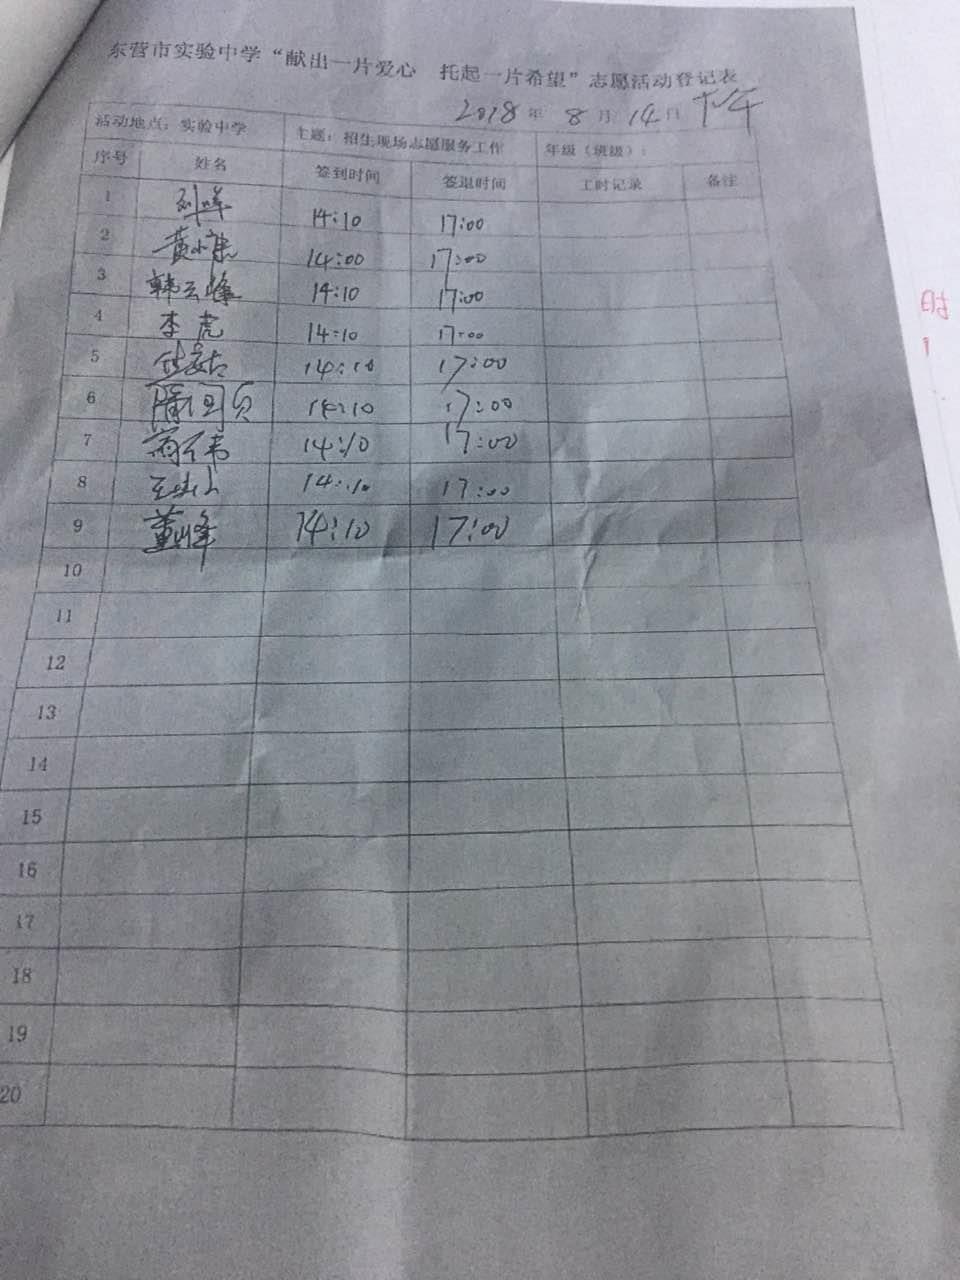 东营市实验中学“献出一片爱心 托起一片希望”志愿活动登记表
2018年 8月14日 下午
活动地点：实验中学 主题：招生现场志愿服务工作 年级（班级）：
序号 姓名 签到时间 签退时间 工时记录 备注
1 14:10 17:00
2 14:00 17:00
3 韩云峰 14:10 17:00
4 李虎 14:10 17:00
5 14:10 17:00
6 14:10 17:00
7 14:10 17:00
8 14:10 17:00
9 董峰 14:10 17:00
10
11
12
13
14
15
16
17
18
19
20
时